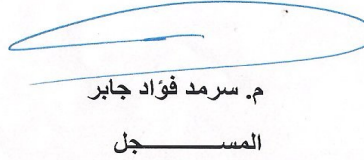 م. سرمد فؤاد جابر
المســـــــجل